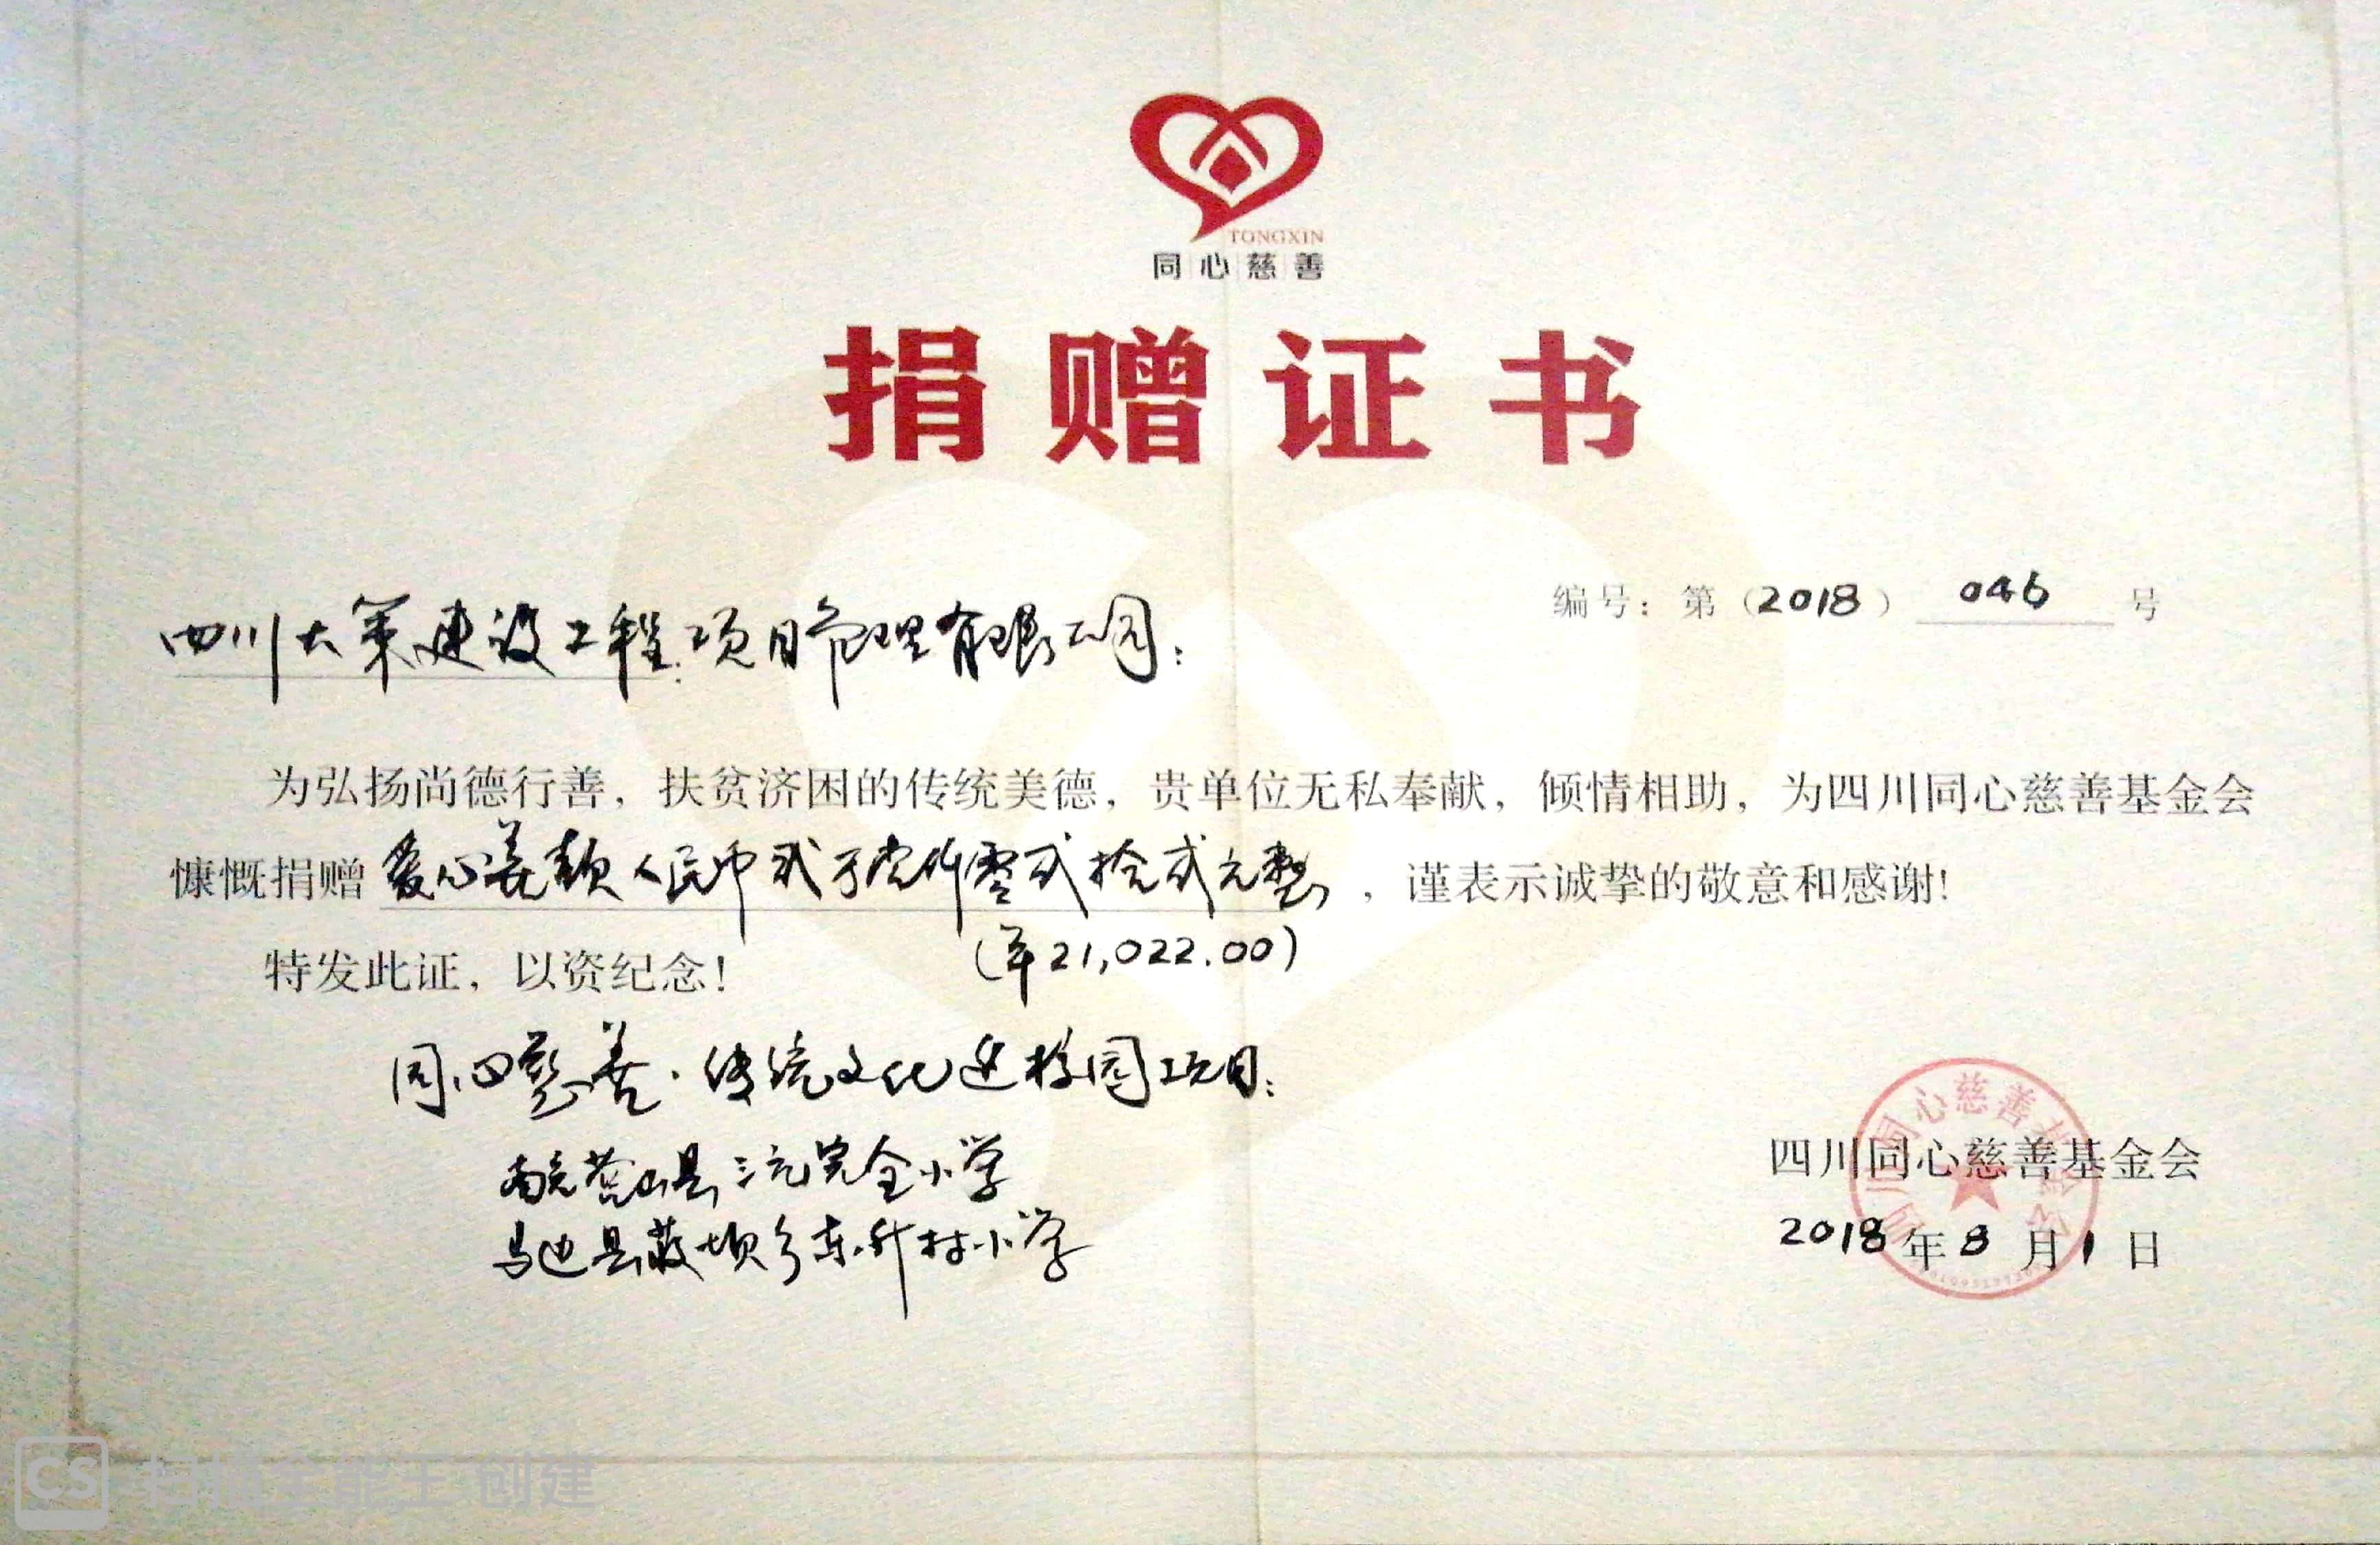 TONGXIN
同心慈善
捐赠证书
编号：第（2018）046号
四川大策建设工程项目管理有限公司：
为弘扬尚德行善，扶贫济困的传统美德，贵单位无私奉献，倾情相助，为四川同心慈善基金会
慷慨捐赠爱心善款人民币贰万壹仟零贰拾贰元整，谨表示诚挚的敬意和感谢！
(¥21,022.00)
特发此证，以资纪念！
同心慈善·传统文化进校园项目：
县三元完全小学
马边县荍坝乡东升村小学
四川同心慈善基金会
四川同心慈善基金会
2018年8月1日
CS 扫描全能王 创建